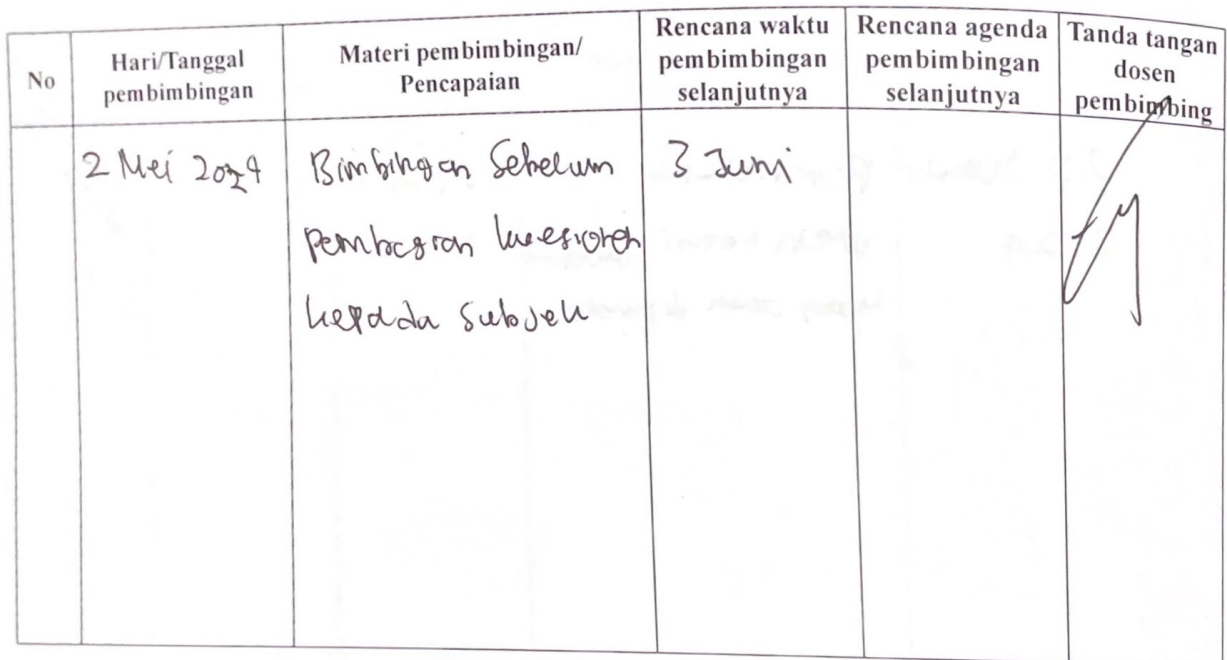 No
Hari/Tanggal
pembimbingan
Materi pembimbingan/
Pencapaian
Rencana waktu
pembimbingan
selanjutnya
Rencana agenda
pembimbingan
selanjutnya
Tanda tangan
dosen
pembimbing
2 Mei 2024
Bimbingan Sebelum
pembagian kuesioner
kepada Subjek
3 Juni